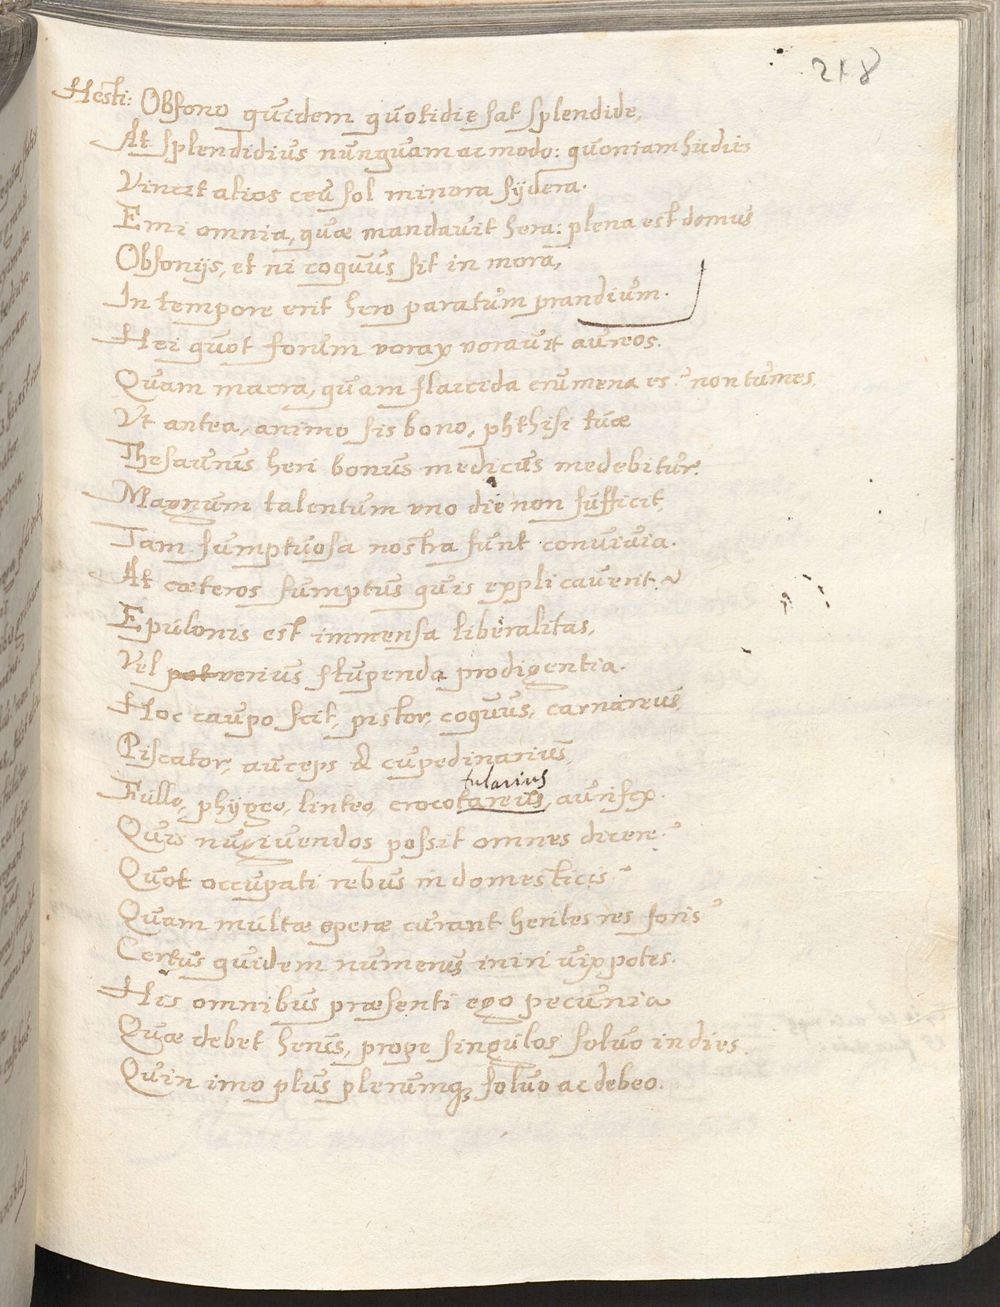 218
Hesti: Obsono quidem quotidie sat splendide,
At splendidius nunquam ac modo: quoniam hic dies
Vincit alios ceu sol minora sydera.
Emi omnia, quæ mandauit hera: plena est domus
Obsonijs, et ni coquus sit in mora,
In tempore erit hero paratum prandium.
Hei quot forum vorax vorauit aureos.
Quam macra, quam flaccida crumena es? non tumes,
Vt antea, animo sis bono, phthisi tuæ
Thesaurus heri bonus medicus medebitur.
Magnum talentum vno die non sufficit,
Tam sumptuosa nostra sunt conuiuia.
At cæteros sumptus quis explicauerit?
Epulonis est immensa liberalitas,
Vel pot verius stupenda prodigentia.
Hoc caupo scit, pistor, coquus, carnarius,
Piscator, auceps & cupedinarius,
tularius
Fullo, phrygio, linteo, crocotarius, aurifex.
Quis nugiuendos possit omnes dicere?
Quot occupati rebus in domesticis?
Quam multæ operæ curant heriles res foris?
Certus quidem numerus iniri uix potes.
His omnibus præsenti ego pecunia
Quæ debet herus, prope singulos soluo in dies.
Quin imo plus plerumq; soluo ac debeo.